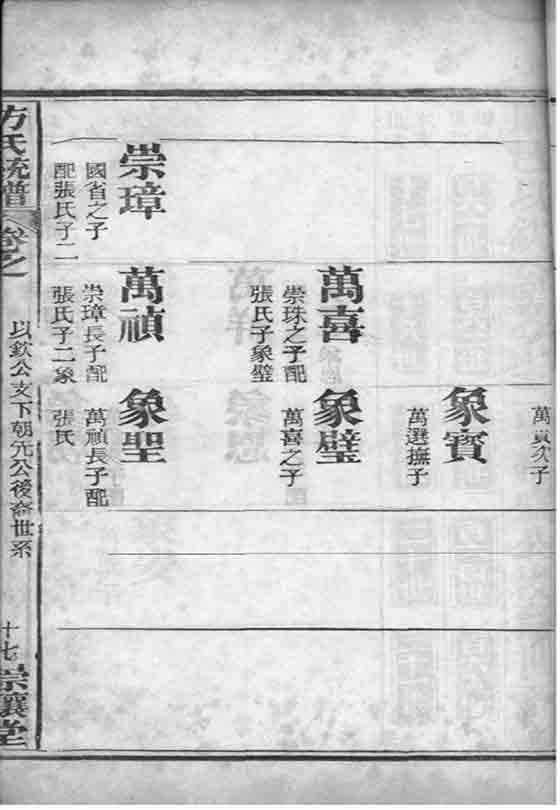 次子
象寶
萬選撫子
萬喜
崇珠之子配
張氏子象璧
象璧
萬喜之子
崇璋
國省之子
配張氏子二
萬禎
崇璋長子配
張氏子二象
象聖
萬禎長子配
張氏
方氏統譜
卷之
以欽公支下朝公後裔世系
十七
崇讓堂